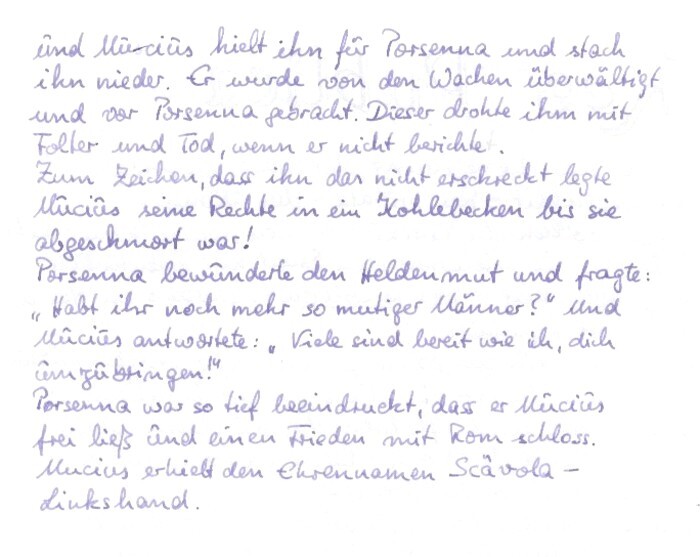 und Mucius hielt ihn für Porsenna und stach
ihn nieder. Er wurde von den Wachen überwältigt
und vor Porsenna gebracht. Dieser drohte ihm mit
Folter und Tod, wenn er nicht berichte.
Zum Zeichen, dass ihn das nicht erschreckt legte
Mucius seine Rechte in ein Kohlebecken bis sie
abgeschmort war!
Porsenna bewunderte den Heldenmut und fragte:
„Habt ihr noch mehr so mutiger Männer?“ Und
Mucius antwortete: „Viele sind bereit wie ich, dich
umzubringen!“
Porsenna war so tief beeindruckt, dass er Mucius
frei ließ und einen Frieden mit Rom schloss.
Mucius erhielt den Ehrennamen Scävola –
Linkshand.